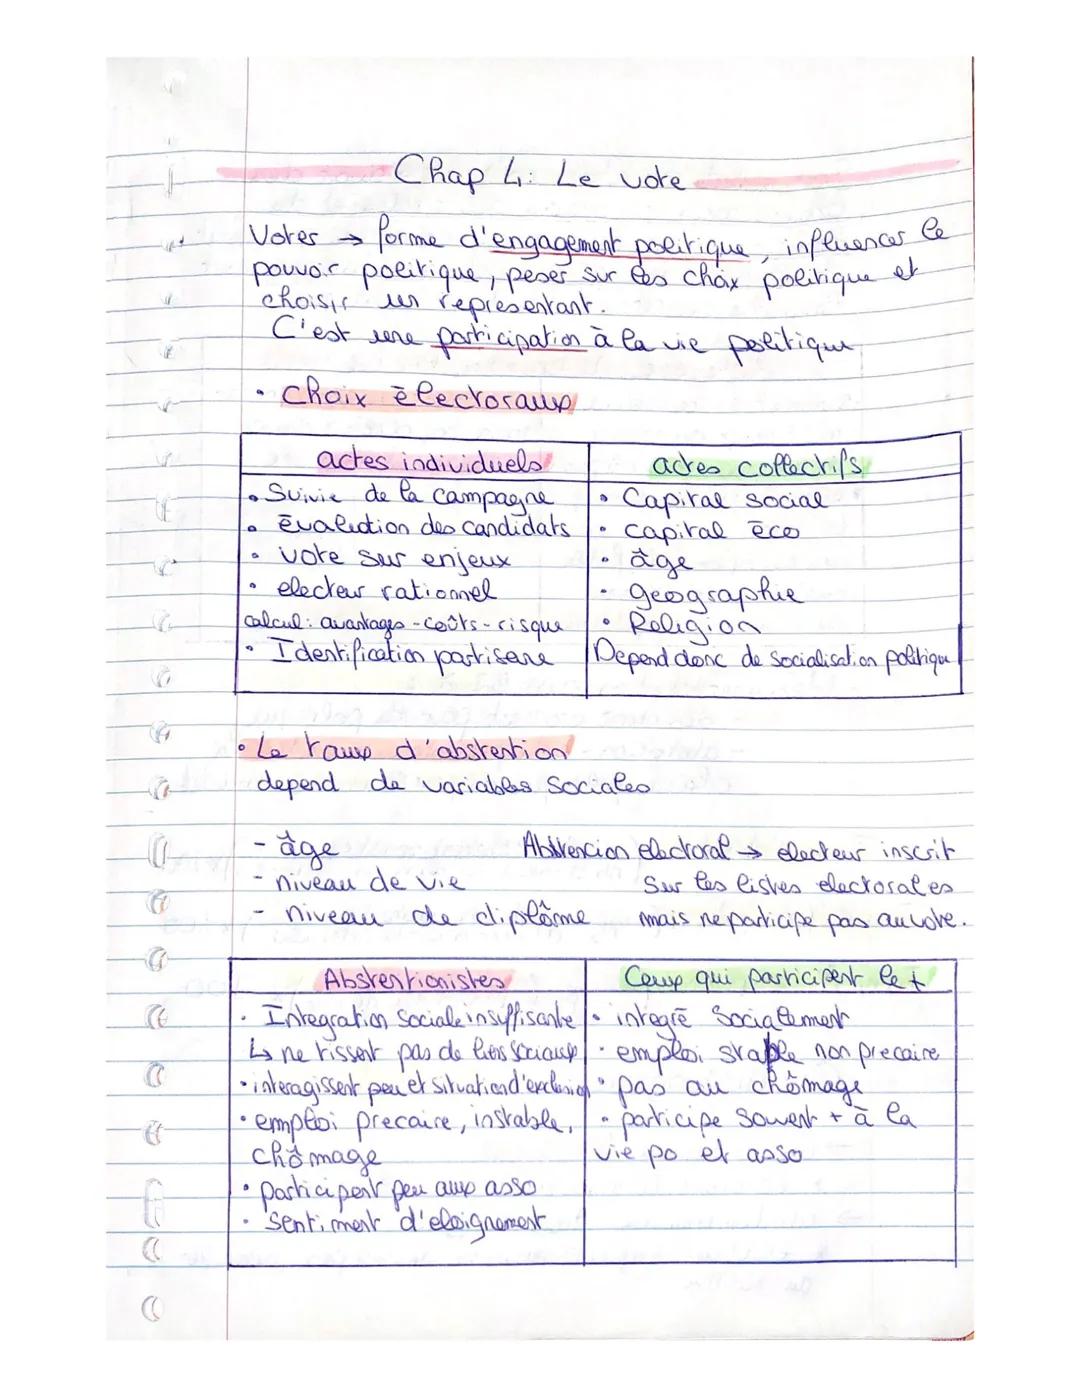 Chap 4: Le vote
Voter → forme d'engagement politique, influencer le
pouvoir politique, peser sur les choix politique et
choisir un representant.
C'est une participation à la vie politique
• choix électoraux
actes individuels
• Suivie de la campagne
• évaluation des candidats
• vote sur enjeux
• electeur rationnel
calcul: avantages - coûts - risque
• Identification partisane
actes collectifs
• Capital social
• capital éco
• âge
• geographie
• Religion
Depend donc de socialisation politique
• Le taux d'abstention
depend de variables sociales
- âge
- niveau de vie
- niveau de diplôme
Abstencion electoral → electeur inscrit
sur les listes electorales
mais ne participe pas au vote.
Abstentionistes
• Integration sociale insuffisante
↳ ne tissent pas de liens sociaux
• interagissent peu et situation d'exclusion
• emploi precaire, instable,
chômage
• participent peu aux asso
• sentiment d'eloignement
Ceux qui participent le +
• integré socialement
• emploi stable non precaire
• pas au chômage
• participe souvent + à la
vie po et asso